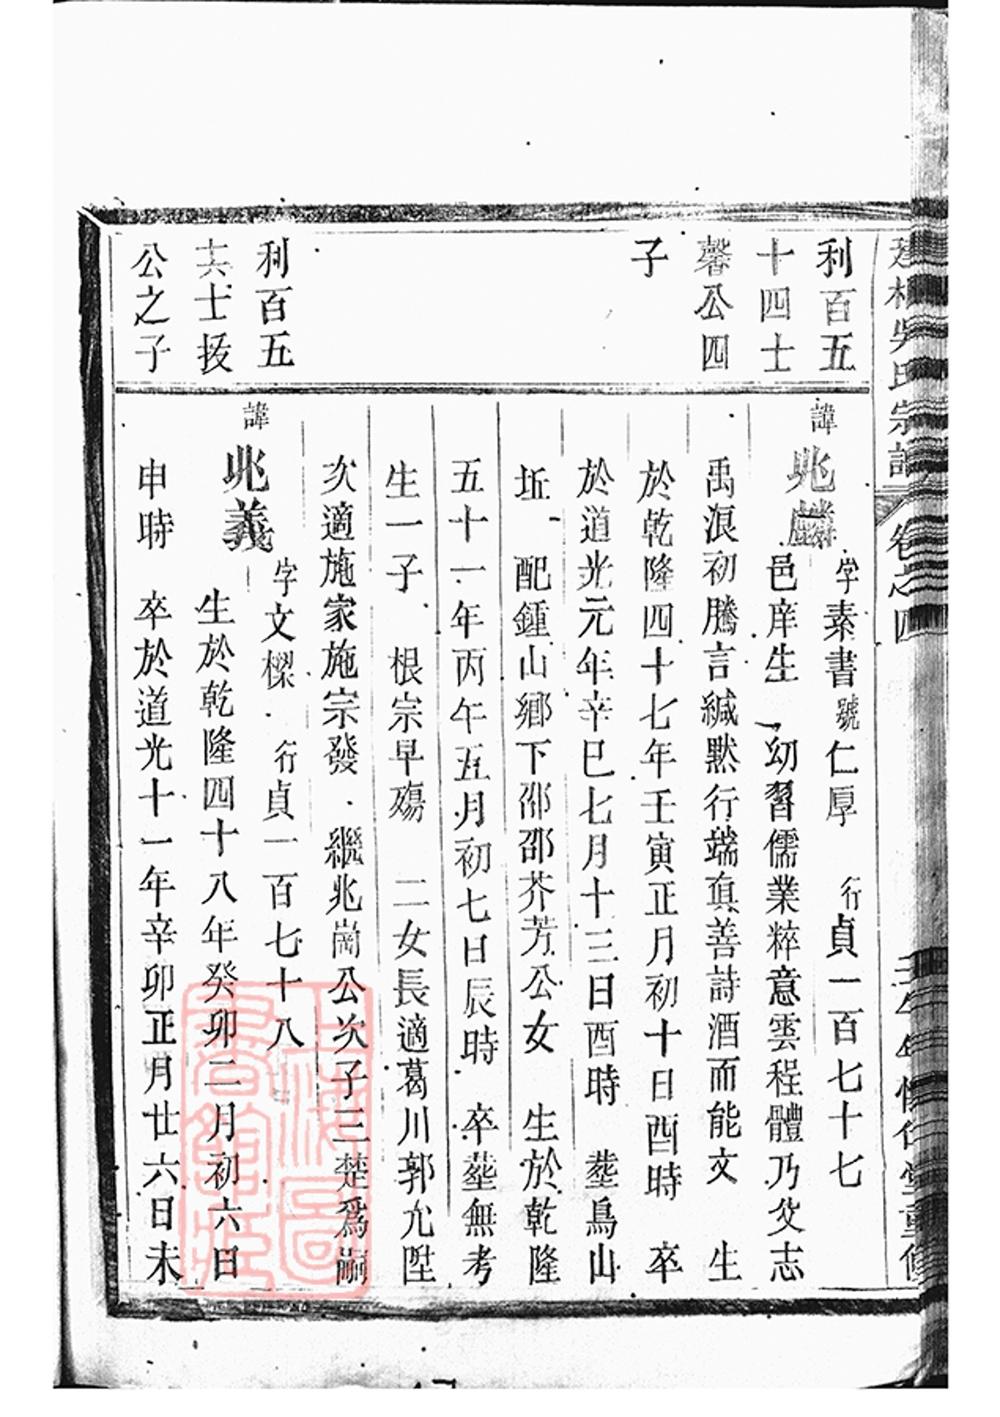 吳氏宗譜 卷之四
利百五
十四士
馨公四
子
諱兆麟 字素書號仁厚 行貞一百七十七
邑庠生 幼習儒業粹意雲程體乃父志
禹浪初騰言緘默行端眞善詩酒而能文 生
於乾隆四十七年壬寅正月初十日酉時 卒
於道光元年辛巳七月十三日酉時 塟鳥山
坵 配鍾山鄉下邵邵芥芳公女 生於乾隆
五十一年丙午五月初七日辰時 卒塟無考
生一子 根宗早殤 二女長適葛川郭允陞
次適施家施宗發 繼兆崗公次子三楚爲嗣
利百五
十六士拔
公之子
諱兆義 字文樑 行貞一百七十八
生於乾隆四十八年癸卯二月初六日
申時 卒於道光十一年辛卯正月廿六日未
上海圖書館藏